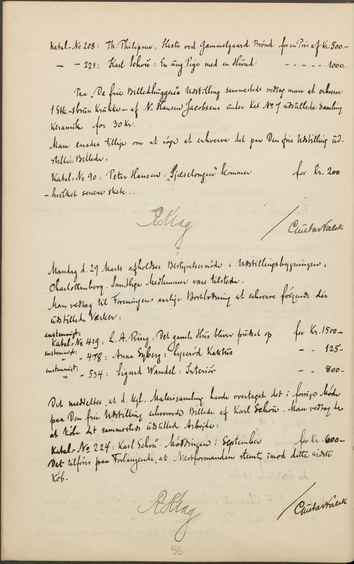 Katal-No 208: Th. Philipsen, Heste ved Gammelgaard Brönd for en Pris af Kr. 500-
- - 221: Karl Schou: En ung Pige med en Hund - - - - - 1000-
Paa De frie Billedhuggeres Udstilling samme sted vedtog man at erhverve
1 Stk. brun Krukke - af N. Hansen Jacobsens under Kat No 7 udstillede Samling
Keramik for 30 Kr.
Man enedes tillige om at søge at erhverve det paa Den frie Udstilling ud-
stillede Billede.
Katal-No 90: Peter Hansen: Spillefuglen kommer for Kr. 200
- hvilket senere skete.
Gustav Falck
Mandag d. 29 Marts afholdtes Bestyrelsesmöde i Udstillingsbygningen,
Charlottenborg. Samtlige Medlemmer vare tilstede.
Man vedtog til Foreningens aarlige Bortlodning at erhverve følgende der
udstillede Værker:
Katal-No 419: L. A. Ring. Det gamle Hus bliver pudset op for Kr. 1500-
- 478: Anna Syberg: Lyserød Kaktus - - 125-
- 534: Sigurd Wandel: Interiör - - 800-
Det meddeltes, at d. kgl. Malerisamling havde overtaget det i forrige Möde
paa Den frie Udstilling erhvervede Billede af Karl Schou. Man vedtog da
at købe det sammesteds udstillede Arbejde:
Katal-No 224: Karl Schou: i September for Kr. 600-
Det tilföies paa Forlangende, at Næstformanden stemte imod dette sidste
Køb.
Gustav Falck